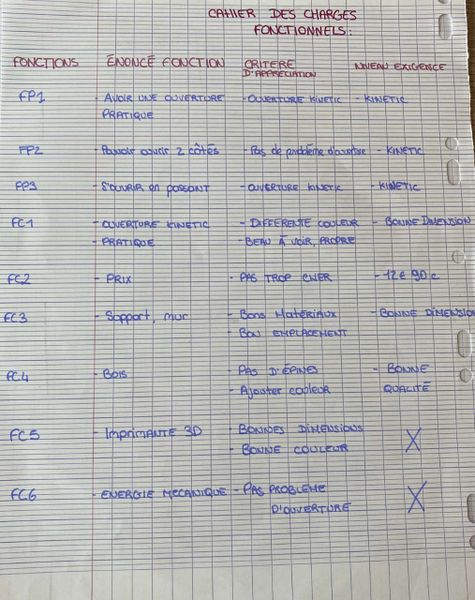 CAHIER DES CHARGES
FONCTIONNELS:
FONCTIONS ÉNONCÉ FONCTION CRITERE D'APPRÉCIATION NIVEAU EXIGENCE
FP1 - AVOIR UNE OUVERTURE - OUVERTURE KINETIC - KINETIC
PRATIQUE
FP2 - Pouvoir ouvrir 2 côtés - Pas de problème d'ouverture - KINETIC
FP3 - S'OUVRIR en poussant - OUVERTURE KINETIC - KINETIC
FC1 - OUVERTURE KINETIC - DIFFERENTE COULEUR - BONNE DIMENSION
- PRATIQUE - BEAU À VOIR, PROPRE
FC2 - PRIX - PAS TROP CHER - 12€ 90c
FC3 - Support, mur - Bons Matériaux - BONNE DIMENSION
- BON EMPLACEMENT
FC4 - BOIS - PAS D'ÉPINES - BONNE
- Ajouter couleur QUALITÉ
FC5 - Imprimante 3D - BONNES DIMENSIONS X
- BONNE COULEUR
FC6 - ENERGIE MECANIQUE - PAS PROBLÈME X
D'OUVERTURE